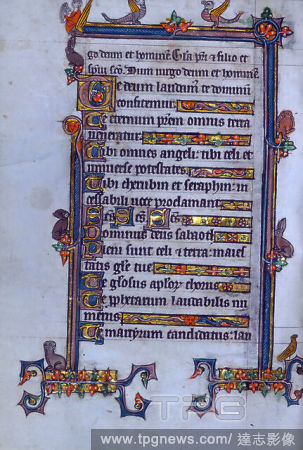 go deum et hominem Gl'a pr'i e filio et
sp'ui sc'o Dum virgo deum et hominem
Te deum laudam' te dominū
confitemur
Te eternum p'rem omnis terra
ueneratur
Tibi omnes angeli tibi celi et
uniuerse potestates
Tibi cherubin et seraphin in
cessabili uoce proclamant
Sc's Sc's Sc's
Dominus deus sabaoth
Pleni sunt celi et terra maies
tatis gl'e tue
Te gl'osus ap'lor' chorus
Te p'phetarum laudabilis nu
merus
Te martyrum candidatus lau
TPG
www.tpgnews.com/達志影像